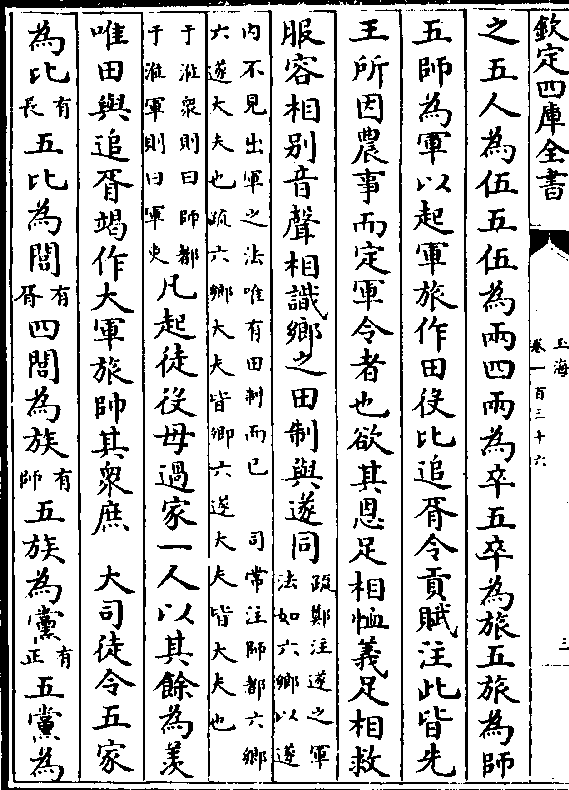 欽定四庫全書
玉海
卷一百三十六
三
之五人為伍五伍為兩四兩為卒五卒為旅五旅為師
五師為軍以起軍旅作田役比追胥令貢賦注此皆先
王所因農事而定軍令者也欲其恩足相恤義足相救
服容相别音聲相識鄉之田制與遂同政鄭注遂之軍法如六鄉以遂
内不見出軍之法唯有田制而已 司常注師都六鄉
六遂大夫也疏六鄉大夫皆卿六遂大夫皆大夫也
于涖衆則曰師都于涖軍則曰軍吏凡起徒役毋過家一人以其餘為羨
唯田與追胥竭作大軍旅帥其衆庶 大司徒令五家
為比有長五比為閭有胥四閭為族有師五族為黨有正五黨為